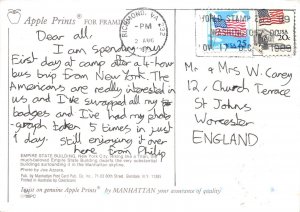 Apple Prints® FOR FRAMING
RICHMOND, VA
PM
2 AUG
WORLD STAMP EXPO
1989
Dear all,
I am spending my
First day at camp after a 4 hour
bus trip from New York. The
Americans are really interested in
us and I've swapped all my
badges and I've had my photo-
graph taken 5 times in just
1 day. Still enjoying it over
here from Philip
Mr & Mrs W. Carey
12, Church Terrace
St Johns
Worcester
ENGLAND
EMPIRE STATE BUILDING, New York City
Photo by Joe Azzara.
Pub. by Manhattan Post Card Pub. Co., Inc.
Printed in Australia
Insist on genuine Apple Prints® by MANHATTAN your assurance of quality